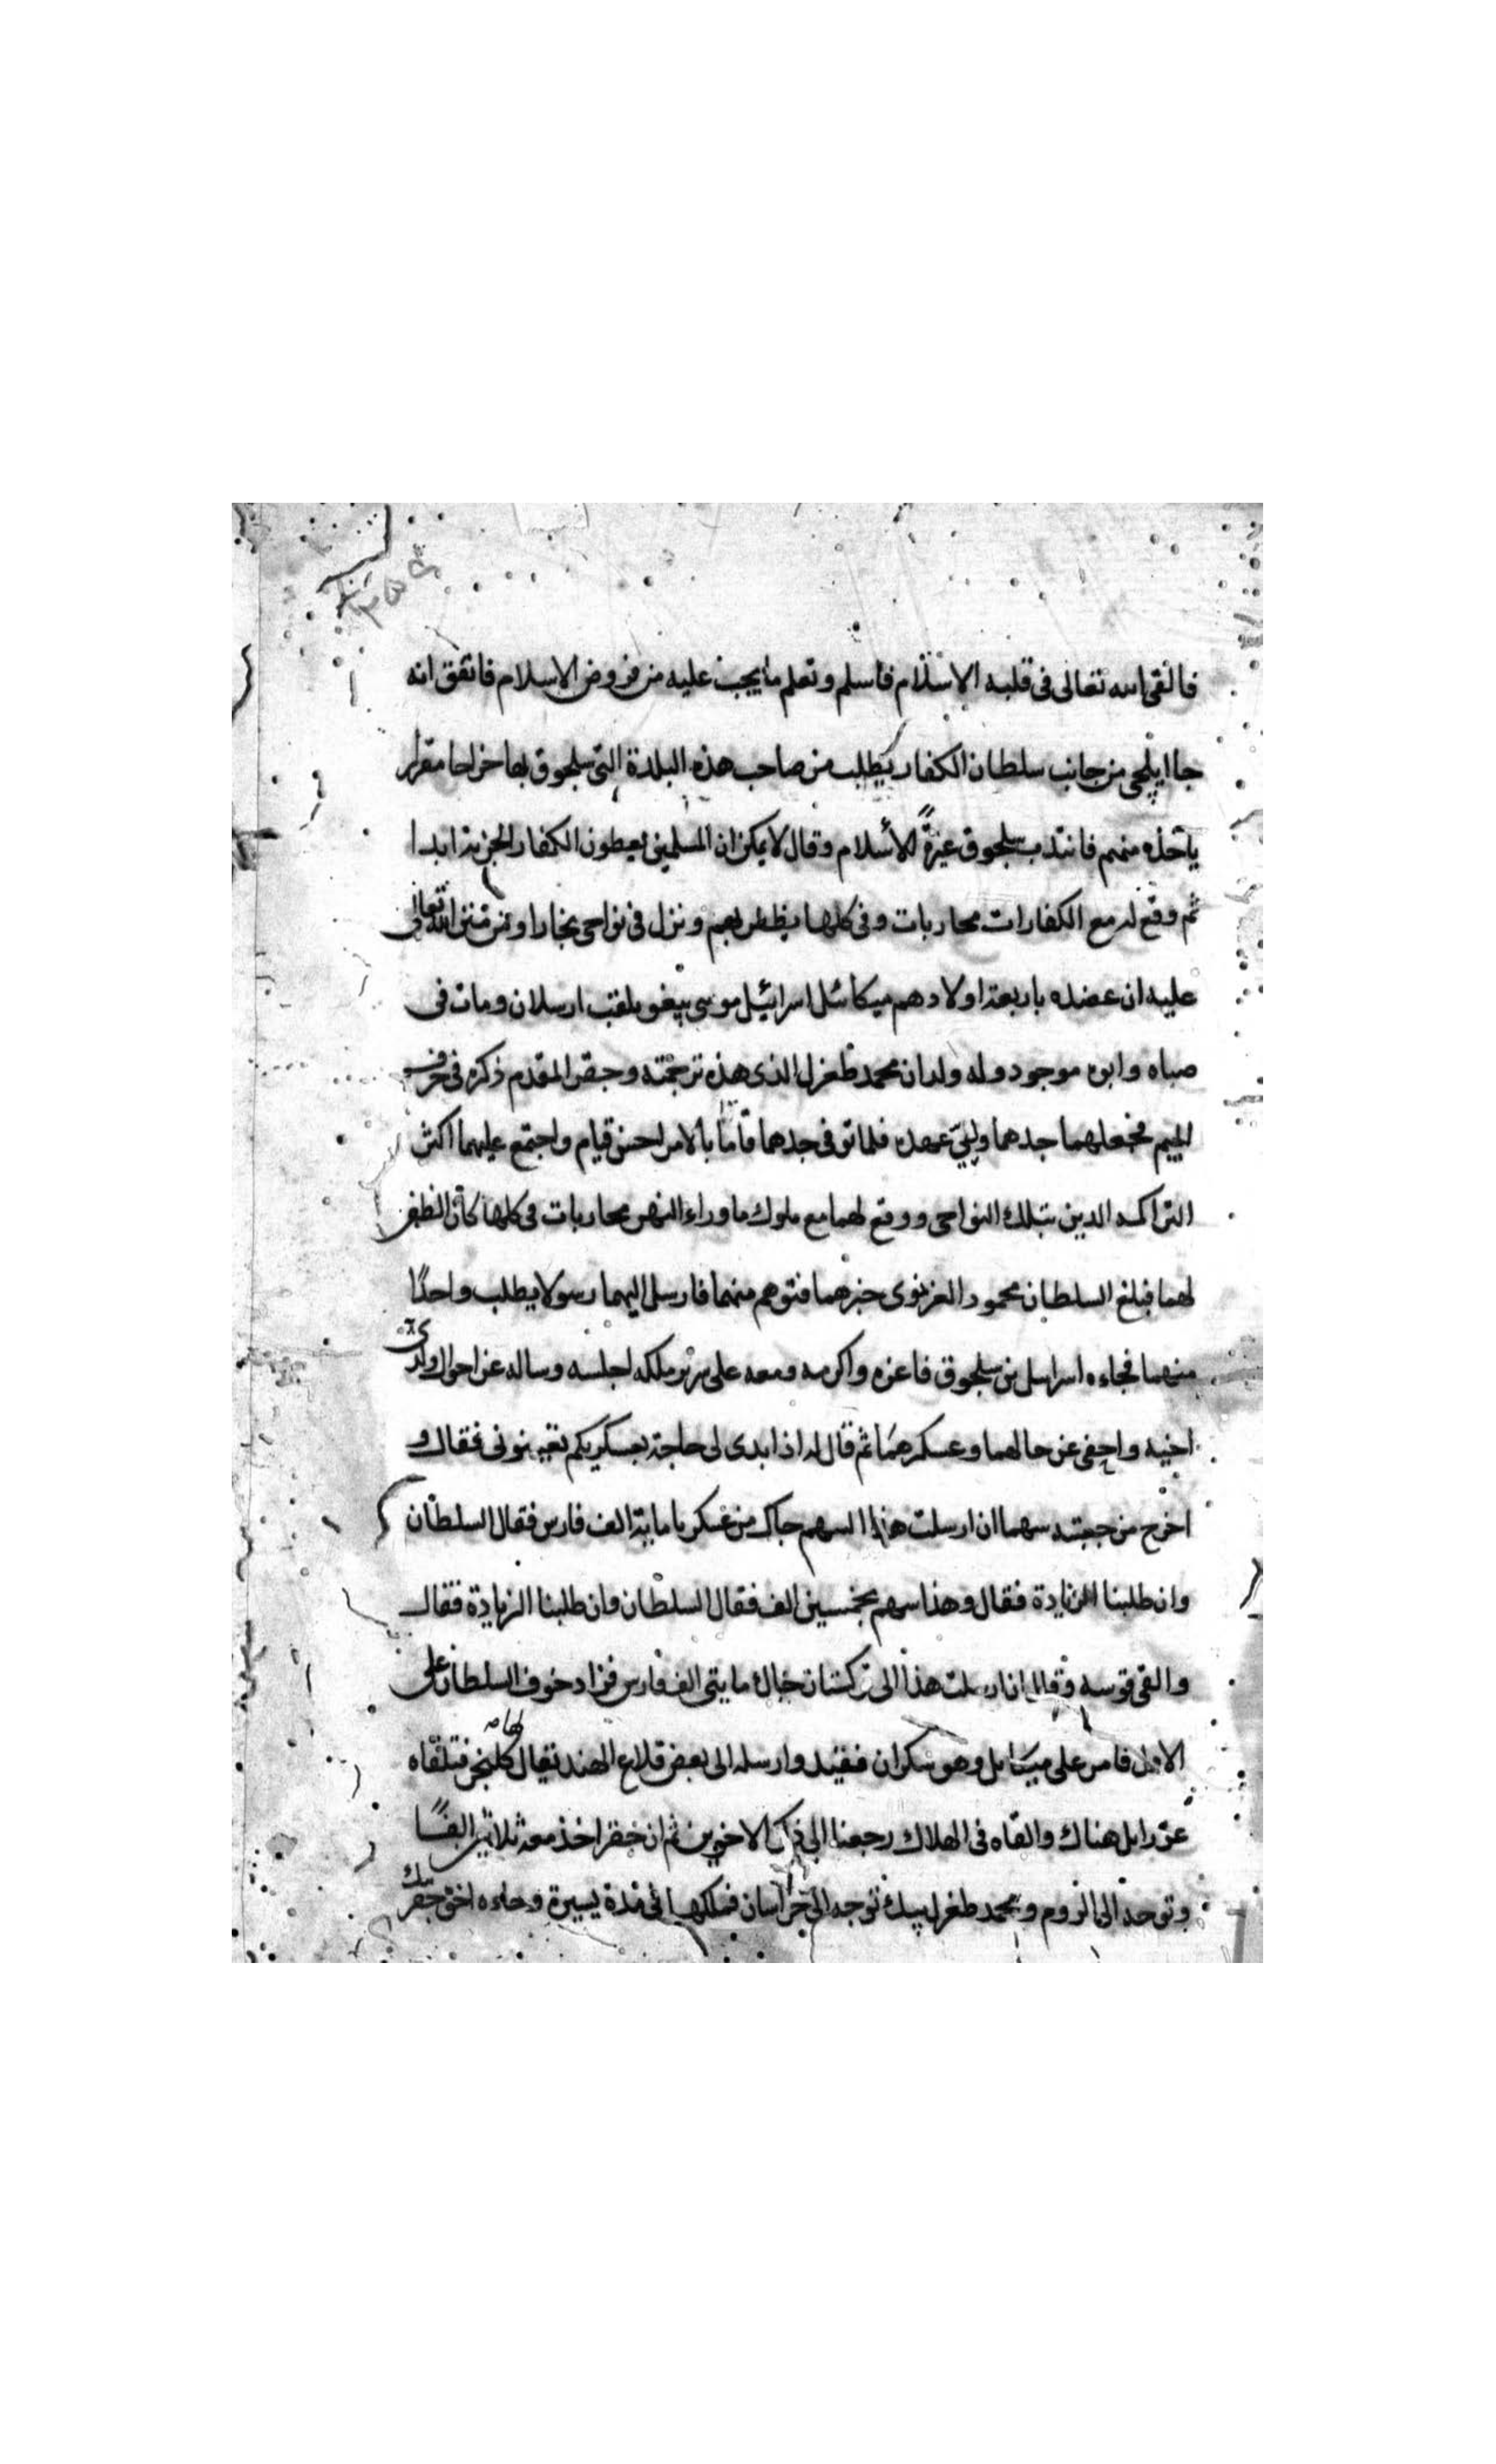 فالقى الله تعالى فى قلبه الاسلام فاسلم وتعلم ما يجب عليه من فروض الاسلام فاتفق انه
جا ايلچى من جانب سلطان الكفار يطلب من صاحب هذه البلدة التى سلجوق بها خراجا مقرار
ياخذه منهم فانتدب سلجوق غيرةً للأسلام وقال لا يمكن ان المسلمين يعطون الكفار الجزية ابدا
ثم وقع له مع الكفارات محاربات وفى كلها يظفر بهم ونزل فى نواحى بخارا ومن منن الله تعالى
عليه ان عضده باربعة اولاد هم ميكائيل اسرائيل موسى بيغو يلقب ارسلان ومات فى
صباه وابوه موجود وله ولدان محمد طغرل الذى هذه ترجمته وجقر المقدم ذكره فى حرف
الجيم فجعلهما جدهما وليى عهده فلما توفى جدهما قاما بالامر احسن قيام واجتمع عليهما اكثر
التراكمه الدين بتلك النواحى ووقع لهما مع ملوك ماوراء النهر محاربات فى كلها كان الظفر
لهما فبلغ السلطان محمود الغزنوى خبرهما فتوهم منهما فارسل اليهما رسولا يطلب واحدًا
منهما فجاءه اسرايل بن سلجوق فاعزه واكرمه ومعه على سرير ملكه اجلسه وساله عن احوال ولدى
اخيه واحفى عن حالهما وعسكرهما ثم قال له اذا بدى لى حاجة بعسكريكم تعينونى فقال و
اخرج من جعبته سهما ان ارسلت هذا السهم جاك من عسكرنا ماية الف فارس فقال السلطان
وان طلبنا الزيادة فقال وهذا سهم بخمسين الف فقال السلطان وان طلبنا الزيادة فقال
والقى قوسه وقال ان ارسلت هذا الى تركستان جاك مايتى الف فارس فزاد خوف السلطان على
الاول فامر على ميكايل وهو سكران فقيد وارسله الى بعض قلاع الهند يقال لها كلنجر فتلقاه
عزرايل هناك والقاه فى الهلاك رجعنا الى ذكر الاخوين ثم ان جقر اخذ معه ثلاثين الفًا
وتوجه الى الروم ومحمد طغرل بيك توجه الى خراسان فملكها فى مدة يسيرة وجاءه اخوه جقر بيك